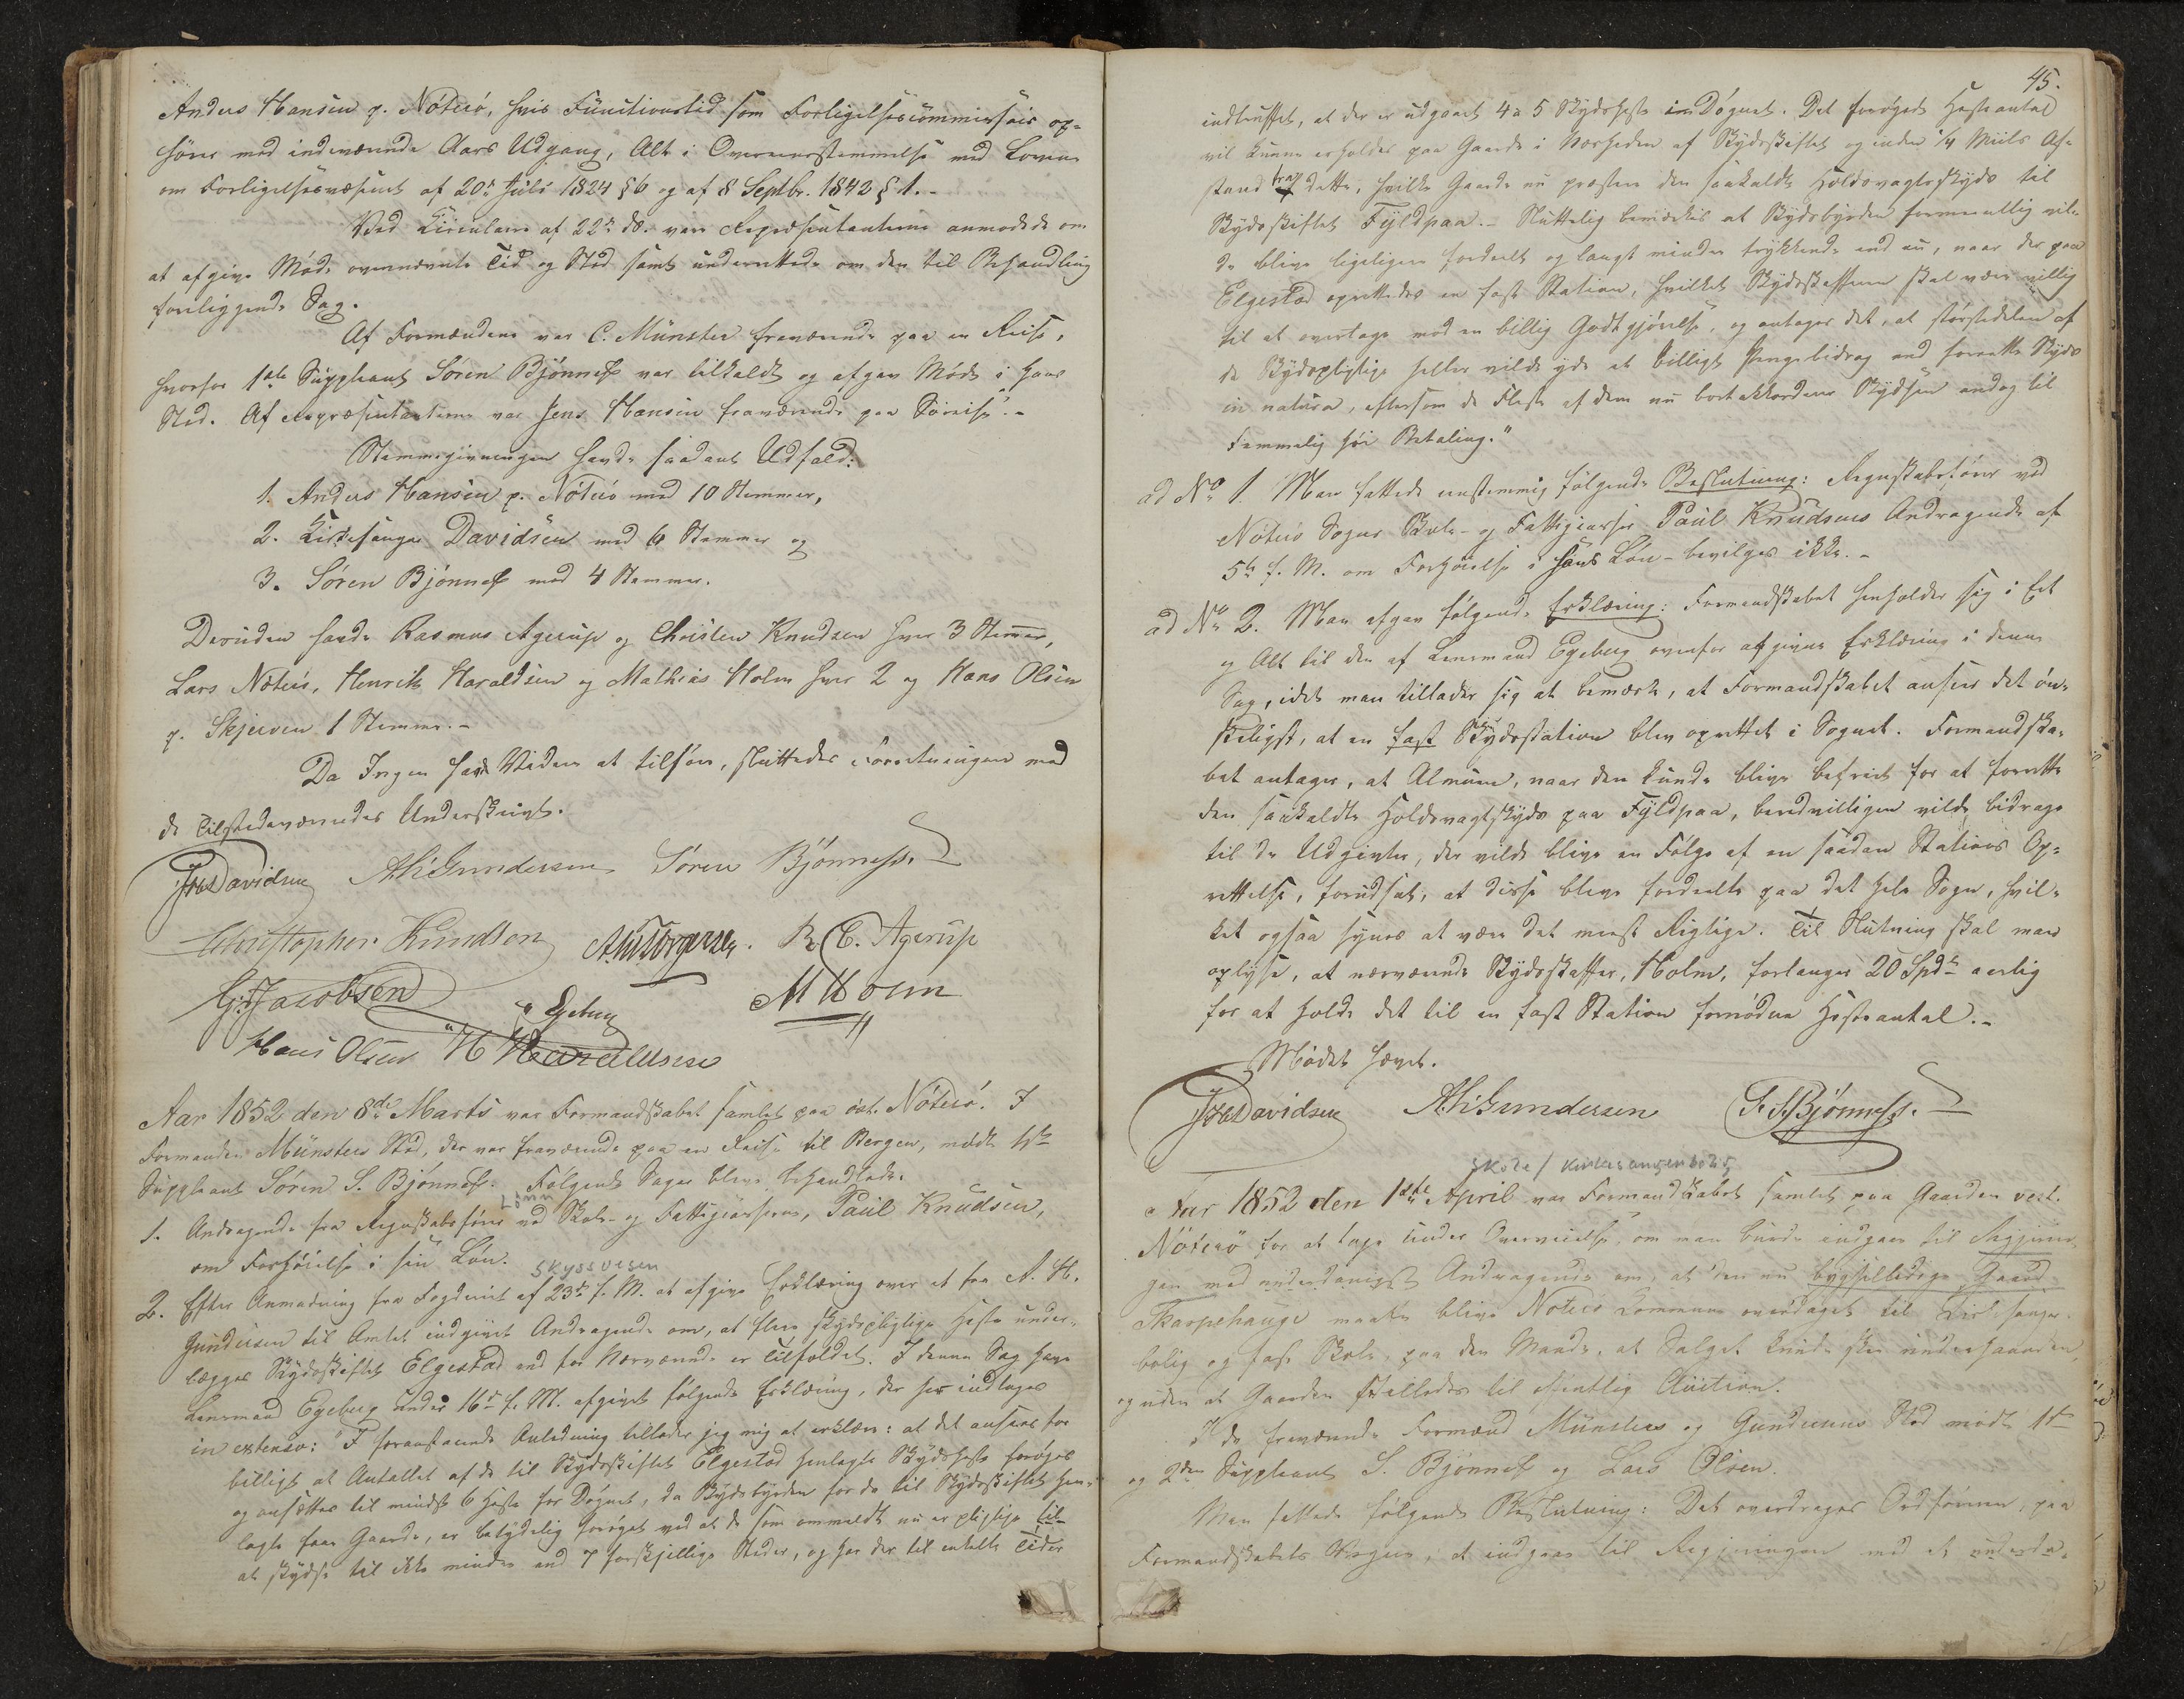 Anders Hansen p. Nöteró, hvis Functionstid som Forligelsescommissair op-
hører med indeværende Aars Udgang, Alt i Overeensstemmelse med Loven
om Forligelsesvæsenet af 20de Juli 1824 § 6 og af 8 Septbr. 1842 § 1.-
Ved Circulaire af 22de ds. vare Repræsentanterne anmodede om
at afgive Møde ovennævnte Tid og Sted samt underrettede om den til Behandling
foreliggende Sag.
Af Formændene var C. Münster fraværende paa en Reise,
hvorfor 1ste Suppleant Søren Bjønnes var tilkaldt og afgav Møde i hans
Sted. Af Repræsentanterne var Jens Hansen fraværende paa Søreise.-
Stemmegivningen havde saadant Udfald:
1. Anders Hansen p. Nöteró med 10 Stemmer,
2. Kirkesanger Davidsen med 6 Stemmer og
3. Søren Bjønnes med 4 Stemmer.
Desuden havde Rasmus Agerup og Christen Knudsen hver 3 Stemmer,
Lars Nöteró, Henrik Haraldsen og Mathias Holm hver 2 og Hans Olsen
p. Skjerven 1 Stemme.-
Da Ingen havde Videre at tilføre, sluttedes Forretningen med
de Tilstedeværendes Underskrift.
Davidsen A. H. Gundersen Søren Bjønness.
Christopher Knudsen R. C. Agerup
G. Jacobsen Egeberg M Holm
Hans Olsen H Haraldsen
Aar 1852 den 8de Marts var Formandskabet samlet paa øst. Nöteró. I
Formanden Münsters Sted, der var fraværende paa en Reise til Bergen, mødte 1ste
Suppleant Søren S. Bjønnes. Følgende Sager bleve behandlede.
Lönn
1. Andragende fra Regnskabsfører ved Skole- og Fattigcasserne, Paul Knudsen,
om Forhøielse i sin Løn.
Skyssvesen
2. Efter Anmodning fra Fogderiet af 23de f. M. at afgive Erklæring over et fra A. H.
Gundersen til Amtet indgivet Andragende om, at flere skydspligtige Heste under-
lægges Skydsskiftet Elgestad end for Nærværende er Tilfældet. I denne Sag har
Lensmand Egeberg under 16de f. M. afgivet følgende Erklæring, der her indtages
in extenso: "I foranstaaende Anledning tillader jeg mig at erklære: at det ansees for
billigt at Antallet af de til Skydsskiftet Elgestad henlagte Skydsheste forøges
og ansættes til mindst 6 Heste for Døgnet, da Skydsbyrden for de til Skydsskiftet hen-
lagte faa Gaarde, er betydelig forøget ved at de som ommeldt nu er pligtige til
at skydse til ikke mindre end 7 forskjellige Steder, og har der til enkelte Tider
45.
indtruffet, at der er udgaaet 4 a 5 Skydsheste i Døgnet. Det forøgede Hesteantal
vil kunne erholdes paa Gaarde i Nærheden af Skydsskiftet og inden 1/4 Miils Af-
stand fra dette, hvilke Gaarde nu præstere den saakaldte Holdsvagtsskyds til
Skydsskiftet Fyldpaa.- Sluttelig bemærkes at Skydsbyrden formeentlig vil-
de blive ligeligere fordeelt og langt mindre trykkende end nu, naar der paa
Elgestad oprettedes en fast Station, hvilket Skydsskafferen skal være villig
til at overtage mod en billig Godtgjørelse, og antages det, at størstedelen af
de Skydspligtige heller vilde yde et billigt Pengebidrag end forrette Skyds
in natura, eftersom de Fleste af dem nu bortakkordere Skydsen endog til
temmelig høi Betaling."
ad No 1. Man fattede eenstemmig følgende Beslutning: Regnskabsfører ved
Nöteró Sogns Skole- og Fattigcasse Paul Knudsens Andragende af
5te f. M. om Forhøielse i hans Løn - bevilges ikke.-
ad No 2. Man afgav følgende Erklæring: Formandskabet henholder sig i Eet
og Alt til den af Lensmand Egeberg ovenfor afgivne Erklæring i denne
Sag, idet man tillader sig at bemærke, at Formandskabet ansees det øn-
skeligst, at en fast Skydsstation blev oprettet i Sognet. Formandska-
bet antager, at Almuen, naar den kunde blive befriet for at forrette
den saakaldte Holdsvagtskyds paa Fyldpaa, beredvilligen vilde bidrage
til de Udgivter, der vilde blive en Følge af en saadan Stations Op-
rettelse, forudsat, at disse bleve fordeelte paa det hele Sogn, hvil-
ket ogsaa synes at være det meest Rigtige. Til Slutning skal man
oplyse, at nærværende Skydsskaffer, Holm, forlanger 20 Spd aarlig
for at holde det til en fast Station fornødne Hesteantal.-
Mødet hævet.
Davidsen A. H. Gundersen S. S. Bjønness.
Skole / Kirkesangerbolig
Aar 1852 den 1ste April var Formandskabet samlet paa Gaarden vest.
Nöterö for at tage under Overveielse, om man burde indgaae til Regjerin-
gen med underdanigst Andragende om, at den nu bygselledige Gaard
Skarpehauge maatte blive Nöteró Commune overdraget til Kirkesanger-
bolig og fast Skole, paa den Maade, at Salget kunde skee underhaanden,
og uden at Gaarden stilledes til offentlig Auction.
I de fraværende Formænd Münsters og Gundersens Sted mødte 1ste
og 2den Suppleant S. Bjønnes og Lars Olsen.
Man fattede følgende Beslutning: Det overdrages Ordføreren, paa
Formandskabets Vegne, at indgaae til Regjeringen med et underda-